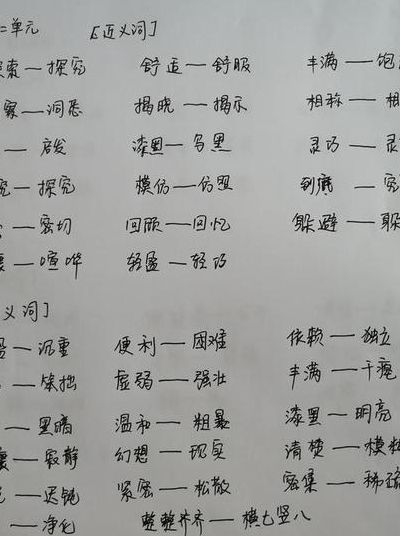 二单元 [近义词]
索—探究 舒适—舒服 丰满—饱
察—洞悉 揭晓—揭示 相称—相
—启发 漆黑—乌黑 灵巧—灵
究—探究 模仿—仿照 到
—密切 回顾—回忆 躲避—躲
—喧哗 轻盈—轻巧
义词]
盈—沉重 便利—困难 依赖—独立
—笨拙 虚弱—强壮 丰满—干瘪
—黑暗 温和—粗暴 漆黑—明亮
—寂静 幻想—现实 清楚—模糊
—迟钝 紧密—松散 密集—稀疏
—净化 整整齐齐—横七竖八